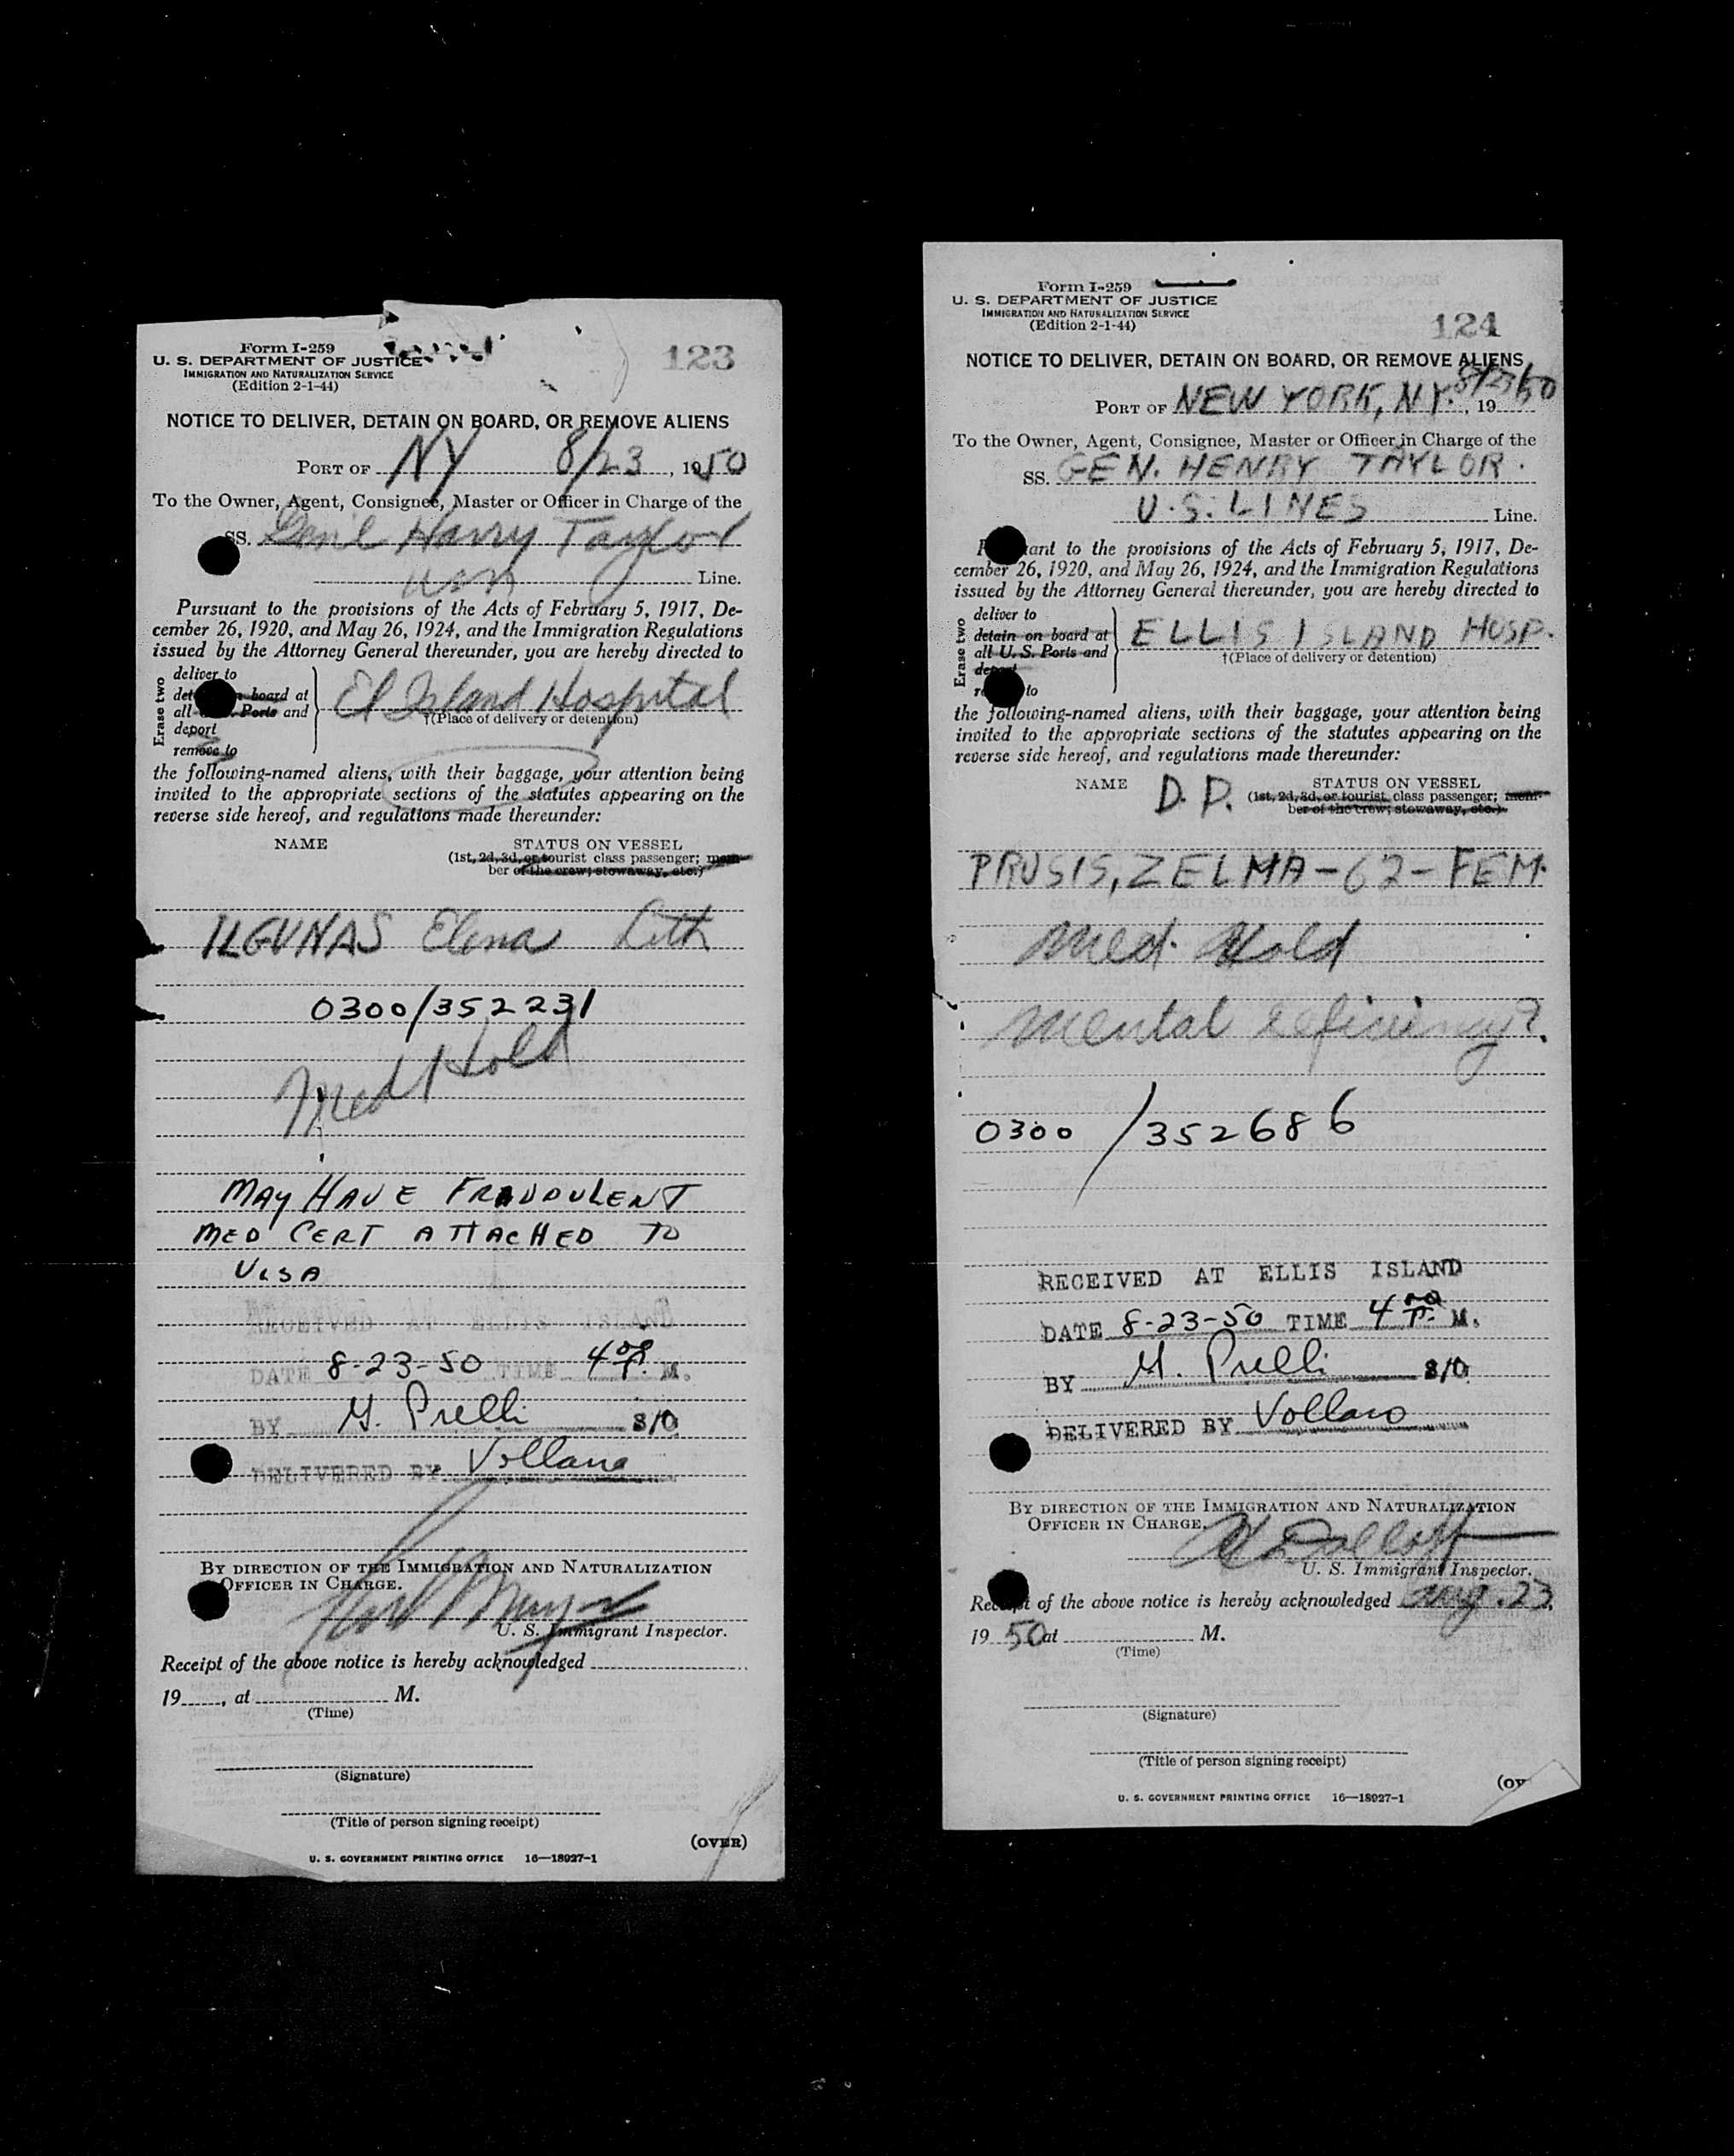 Form I-259
U. S. DEPARTMENT OF JUSTICE
IMMIGRATION AND NATURALIZATION SERVICE
(Edition 2-1-44)
123
NOTICE TO DELIVER, DETAIN ON BOARD, OR REMOVE ALIENS
PORT OF NY 8/23, 1950
To the Owner, Agent, Consignee, Master or Officer in Charge of the
SS. Harry Taylor
Line.
Pursuant to the provisions of the Acts of February 5, 1917, De-
cember 26, 1920, and May 26, 1924, and the Immigration Regulations
issued by the Attorney General thereunder, you are hereby directed to
Erase two
deliver to
board at
all Ports and
deport
remove to
El Island Hospital
†(Place of delivery or detention)
the following-named aliens, with their baggage, your attention being
invited to the appropriate sections of the statutes appearing on the
reverse side hereof, and regulations made thereunder:
NAME STATUS ON VESSEL
(1st, 2d, 3d, or tourist class passenger; mem-
ber of the crew; stowaway, etc.)
ILGUNAS Elena Lith
0300/352231
Med Hold
MAY HAVE FRAUDULENT
MED CERT ATTACHED TO
VISA
RECEIVED AT ELLIS ISLAND
DATE 8-23-50 TIME 4 00 P. M.
BY M. Prelli S/O
DELIVERED BY Vollaro
BY DIRECTION OF THE IMMIGRATION AND NATURALIZATION
OFFICER IN CHARGE.
U. S. Immigrant Inspector.
Receipt of the above notice is hereby acknowledged
19, at M.
(Time)
(Signature)
(Title of person signing receipt)
(OVER)
U. S. GOVERNMENT PRINTING OFFICE 16—18927-1
Form I-259
U. S. DEPARTMENT OF JUSTICE
IMMIGRATION AND NATURALIZATION SERVICE
(Edition 2-1-44)
124
NOTICE TO DELIVER, DETAIN ON BOARD, OR REMOVE ALIENS
PORT OF NEW YORK, N.Y. 8/23/50, 19
To the Owner, Agent, Consignee, Master or Officer in Charge of the
SS. GEN. HENRY TAYLOR.
U.S. LINES Line.
to the provisions of the Acts of February 5, 1917, De-
cember 26, 1920, and May 26, 1924, and the Immigration Regulations
issued by the Attorney General thereunder, you are hereby directed to
Erase two
deliver to
detain on board at
all U. S. Ports and
to
ELLIS ISLAND HOSP.
†(Place of delivery or detention)
the following-named aliens, with their baggage, your attention being
invited to the appropriate sections of the statutes appearing on the
reverse side hereof, and regulations made thereunder:
NAME D.P. STATUS ON VESSEL
(1st, 2d, 3d, or tourist class passenger; mem-
ber of the crew; stowaway, etc.)
PRUSIS, ZELMA - 62 - FEM.
Med. Hold
Mental deficiency?
0300 /352686
RECEIVED AT ELLIS ISLAND
DATE 8-23-50 TIME 4 00 P. M.
BY M. Prelli S/O
DELIVERED BY Vollaro
BY DIRECTION OF THE IMMIGRATION AND NATURALIZATION
OFFICER IN CHARGE.
U. S. Immigrant Inspector.
Receipt of the above notice is hereby acknowledged Aug. 23,
19 50 at M.
(Time)
(Signature)
(Title of person signing receipt)
U. S. GOVERNMENT PRINTING OFFICE 16—18927-1